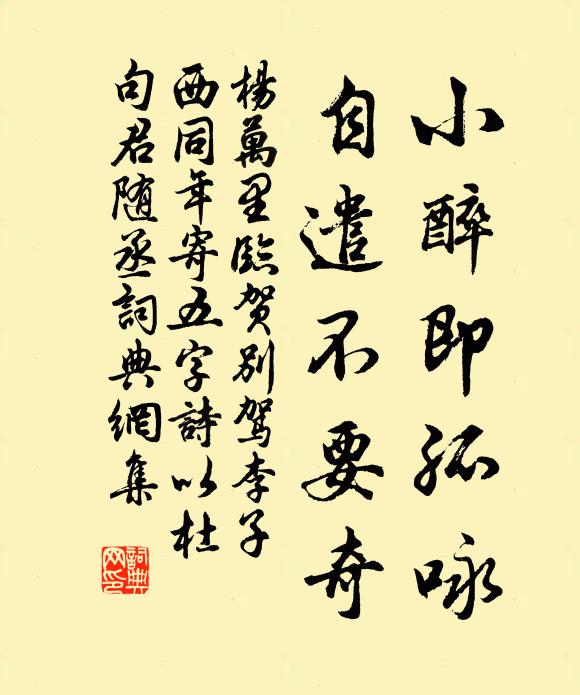 小醉即孤咏
自遣不要奇
楊萬里臨賀別駕李子
西同年寄五字詩以杜
句君随丞詞典網集
詞典
网印